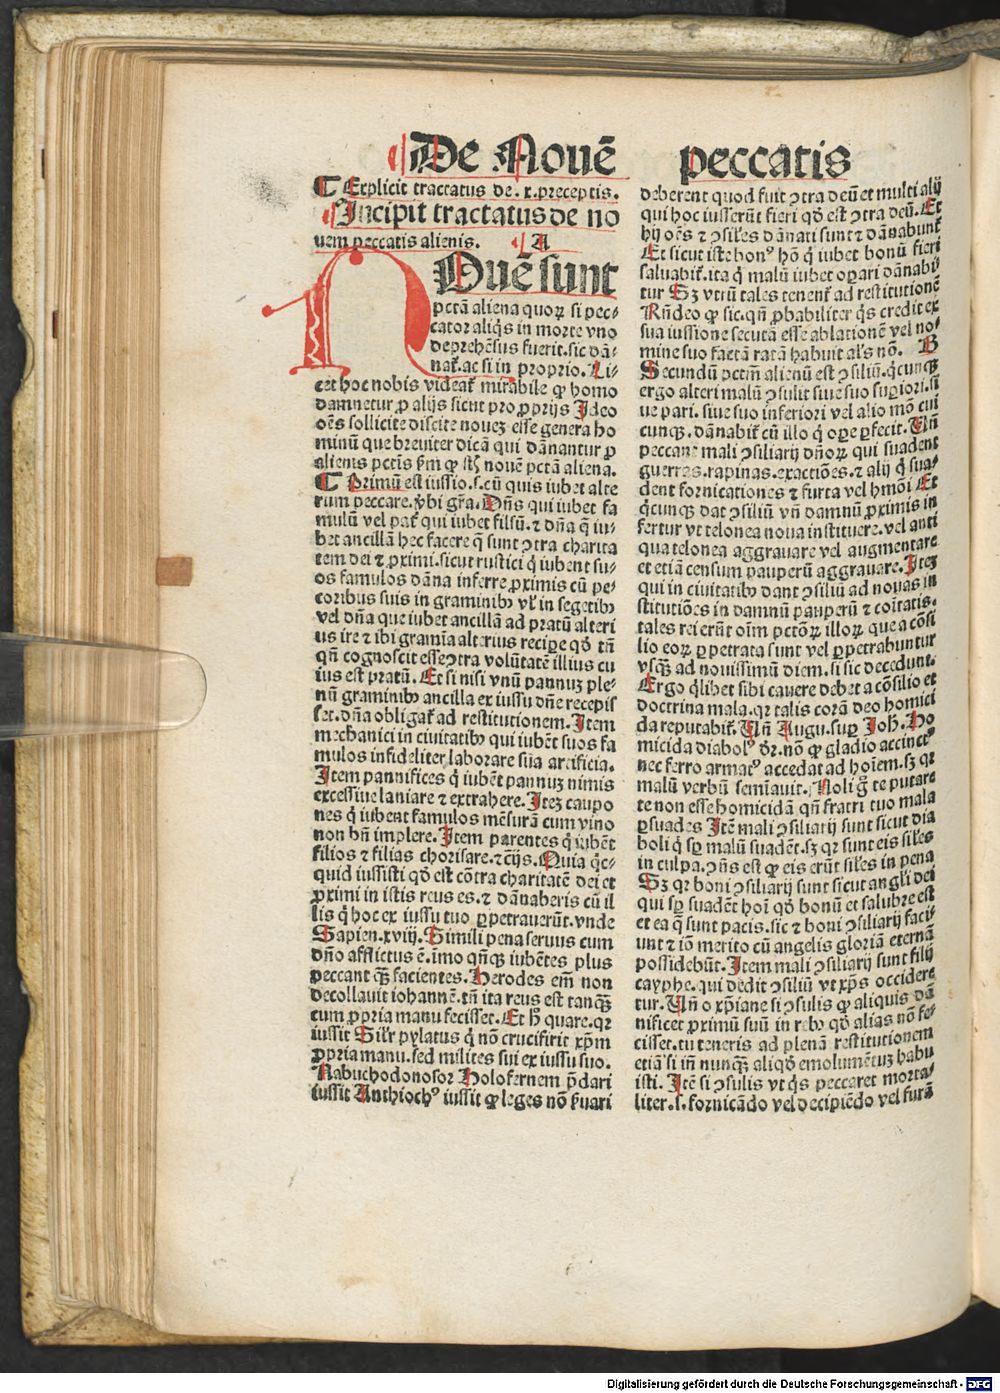 De Nouē peccatis
¶ Explicit tractatus de .x. preceptis.
Incipit tractatus de no
uem peccatis alienis. A
NOuē sunt
pctā aliena quoꝝ si pec⸗
cator aliq̄s in morte vno
deprehēsus fuerit. sic dā⸗
nat̄. ac si in proprio. Li⸗
cet hoc nobis videat̄ mirabile ꝙ homo
damnetur ꝓ alijs sicut pro ꝓprijs Ideo
oēs sollicite discite nouez esse genera ho
minū que breuiter dicā qui dānantur ꝓ
alienis pctīs ẜm ꝙ st̄ nouē pctā aliena.
¶ Primū est iussio. s. cū quis iubet alte
rum peccare. v̓bi gr̄a. Dn̄s qui iubet fa
mulū vel pat̄ qui iubet filiū. ⁊ dn̄a q̄ iu⸗
bet ancillā hec facere q̄ sunt ↄtra charita
tem dei ⁊ ꝓximi. sicut rustici q̇ iubent su⸗
os famulos dāna inferre ꝓximis cū pe⸗
coribus suis in graminibꝰ vl̓ in segetibꝰ
vel dn̄a que iubet ancillā ad pratū alteri
us ire ⁊ ibi gramīa alterius recipe qd̓ tn̄
qn̄ cognoscit esse ↄtra volūtatē illius cu
ius est pratū. Et si nisi vnū pannuz ple⸗
nū graminibꝰ ancilla ex iussu dn̄e recepis
set. dn̄a obligat̄ ad restitutionem. Item
mechanici in ciuitatibꝰ qui iubēt suos fa
mulos infideliter laborare sua artificia.
Item pannifices q̇ iubēt pannuz nimis
excessiue laniare ⁊ extrahere. Itez caupo
nes q̇ iubent famulos mēsurā cum vino
non bn̄ implere. Item parentes q̇ iubēt
filios ⁊ filias chorisare. ⁊c̄ijs. Quia q̇c⸗
quid iussisti qd̓ est cōtra charitatē dei et
ꝓximi in istis reus es. ⁊ dānaberis cū il
lis q̇ hoc ex iussu tuo ꝑpetrauerūt. vnde
Sapien. xviij. Simili pena seruus cum
dn̄o afflictus ē. imo qn̄qꝫ iubētes plus
peccant qꝫ̄ facientes. Herodes em̄ non
decollauit iohannē. tn̄ ita reus est tanqꝫ̄
cum ꝓpria manu fecisset. Et h̄ quare. qꝛ
iussit Sil̓r pylatus q̇ nō crucifixit xp̄m
ꝓpria manu. sed milites sui ex iussu suo.
Nabuchodonosor Holofernem p̄dari
iussit Anthiochꝰ iussit ꝙ leges nō ẜuari
deberent quod fuit ↄtra deū et multi alij
qui hoc iusserūt fieri qd̓ est ↄtra deū. Et
hij oēs ⁊ ↄsil̓es dānati sunt ⁊ dānabunt̄
Et sicut iste bonꝰ hō q̇ iubet bonū fieri
saluabit̄. ita q̇ malū iubet oꝑari dānabi⸗
tur Sꝫ vtrū tales tenent̄ ad restitutionē
Rn̄deo ꝙ sic. qn̄ ꝓbabiliter q̇s credit ex
sua iussione secutā esse ablationē vel no⸗
mine suo factā ratā habuit al̓s nō. B
Secundū pctm̄ alienū est ↄsiliū. q̇cunqꝫ
ergo alteri malū ↄsulit siue suo suꝑiori. si
ue pari. siue suo inferiori vel alio mō cui
cunqꝫ. dānabit̄ cū illo q̇ oꝑe ꝑfecit. Vn̄
peccant mali ↄsiliarij dn̄oꝝ qui suadent
guerras. rapinas. exactiōes. ⁊ alij q̇ sua⸗
dent fornicationes ⁊ furta vel hmōi Et
q̇cunqꝫ dat ↄsiliū vn̄ damnū ꝓximis in
fertur vt telonea noua instituere. vel anti
qua telonea aggrauare vel augmentare
et etiā censum pauperū aggrauare. Itez
qui in ciuitatibꝰ dant ↄsiliū ad nouas in
stitutiōes in damnū pauperū ⁊ cōitatis.
tales rei erūt oīm pctōꝝ illoꝝ que a cōsi
lio eoꝝ ꝑpetrata sunt vel ꝑpetrabuntur
vsqꝫ̄ ad nouissimū diem. si sic decedunt.
Ergo q̇libet sibi cauere debet a cōsilio et
doctrina mala. qꝛ talis corā deo homici
da reputabit̄. Vn̄ Augu. suꝑ Joh̄. Ho
micida diabolꝰ dꝛ̄. nō ꝙ gladio accinctꝰ
nec ferro armatꝰ accedat ad hoīem. sꝫ qꝛ
malū verbū semīauit. Noli g̊ te putare
te non esse homicidā qn̄ fratri tuo mala
ꝑsuades Itē mali ↄsiliarij sunt sicut dia
boli q̇ sꝑ malū suadēt. sꝫ qꝛ sunt eis sil̓es
in culpa. ↄn̄s est ꝙ eis erūt sil̓es in pena
Sꝫ qꝛ boni ↄsiliarij sunt sicut angl̓i dei
qui sꝑ suadēt hoī qd̓ bonū et salubre est
et ea q̄ sunt pacis. sic ⁊ boni ↄsiliarij faci⸗
unt ⁊ iō merito cū angelis gloriā eternā
possidebūt. Item mali ↄsiliarij sunt filij
cayphe. qui dedit ↄsiliū vt xp̄s occidere
tur. Vn̄ o xp̄iane si ↄsulis ꝙ aliquis dā
nificet ꝓximū suū in rebꝰ qd̓ alias nō fe⸗
cisset. tu teneris ad plenā restitutionem
etiā si in̄ nunqꝫ̄ aliqd̓ emolumētuz habu
isti. Itē si ↄsulis vt q̇s peccaret morta⸗
liter. s. fornicādo vel decipiēdo vel furā
Digitalisierung gefördert durch die Deutsche Forschungsgemeinschaft - DFG